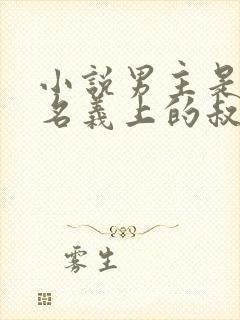 小說男主是
名義上的叔
雾生